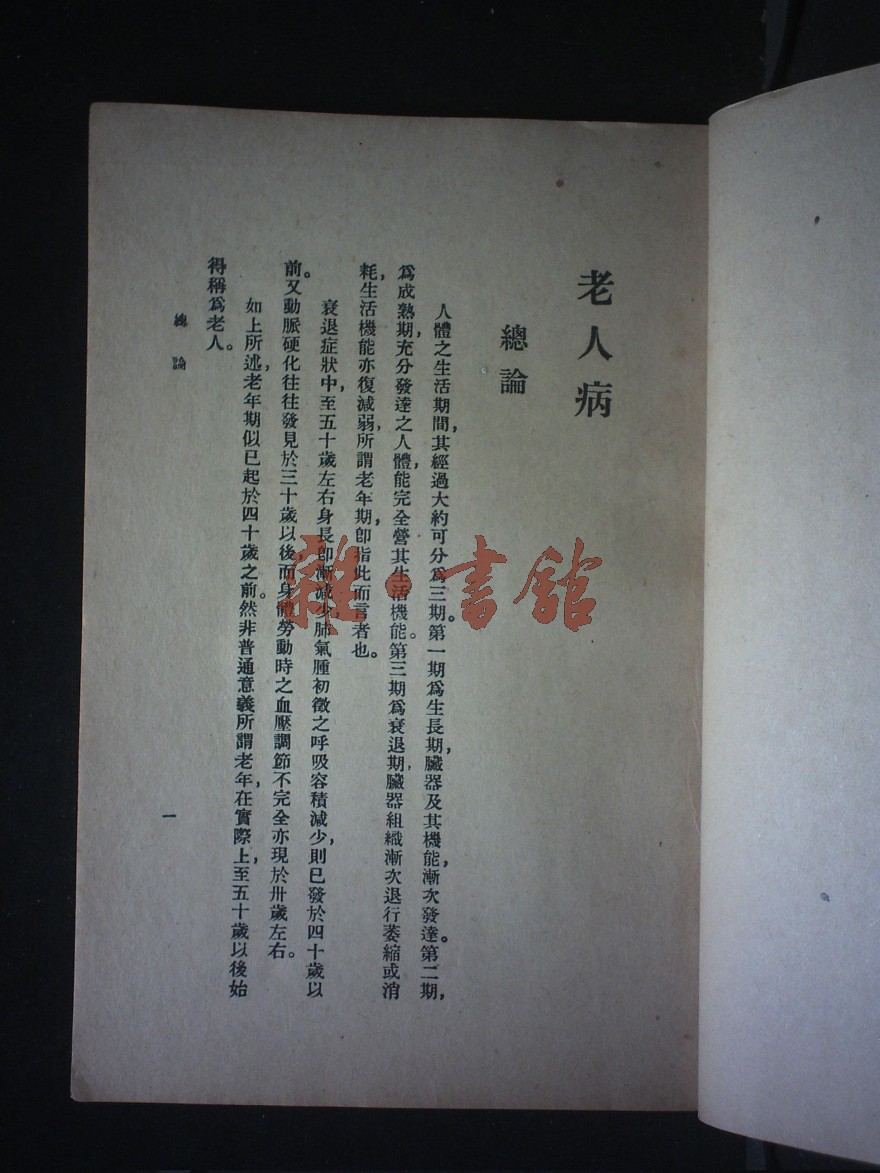 老人病
總論
人體之生活期間，其經過大約可分爲三期。第一期爲生長期，臟器及其機能漸次發達。第二期，
爲成熟期，充分發達之人體，能完全營其生活機能。第三期爲衰退期，臟器組織漸次退行萎縮或消
耗，生活機能亦復減弱，所謂老年期，卽指此而言者也。
衰退症狀中，至五十歲左右身長卽漸減少，肺氣腫初徵之呼吸容積減少，則已發於四十歲以
前。又動脈硬化往往發見於三十歲以後，而身體勞動時之血壓調節不完全亦現於卅歲左右。
如上所述，老年期似已起於四十歲之前。然非普通意義所謂老年，在實際上至五十歲以後始
得稱爲老人。
總論
一
雜·書館